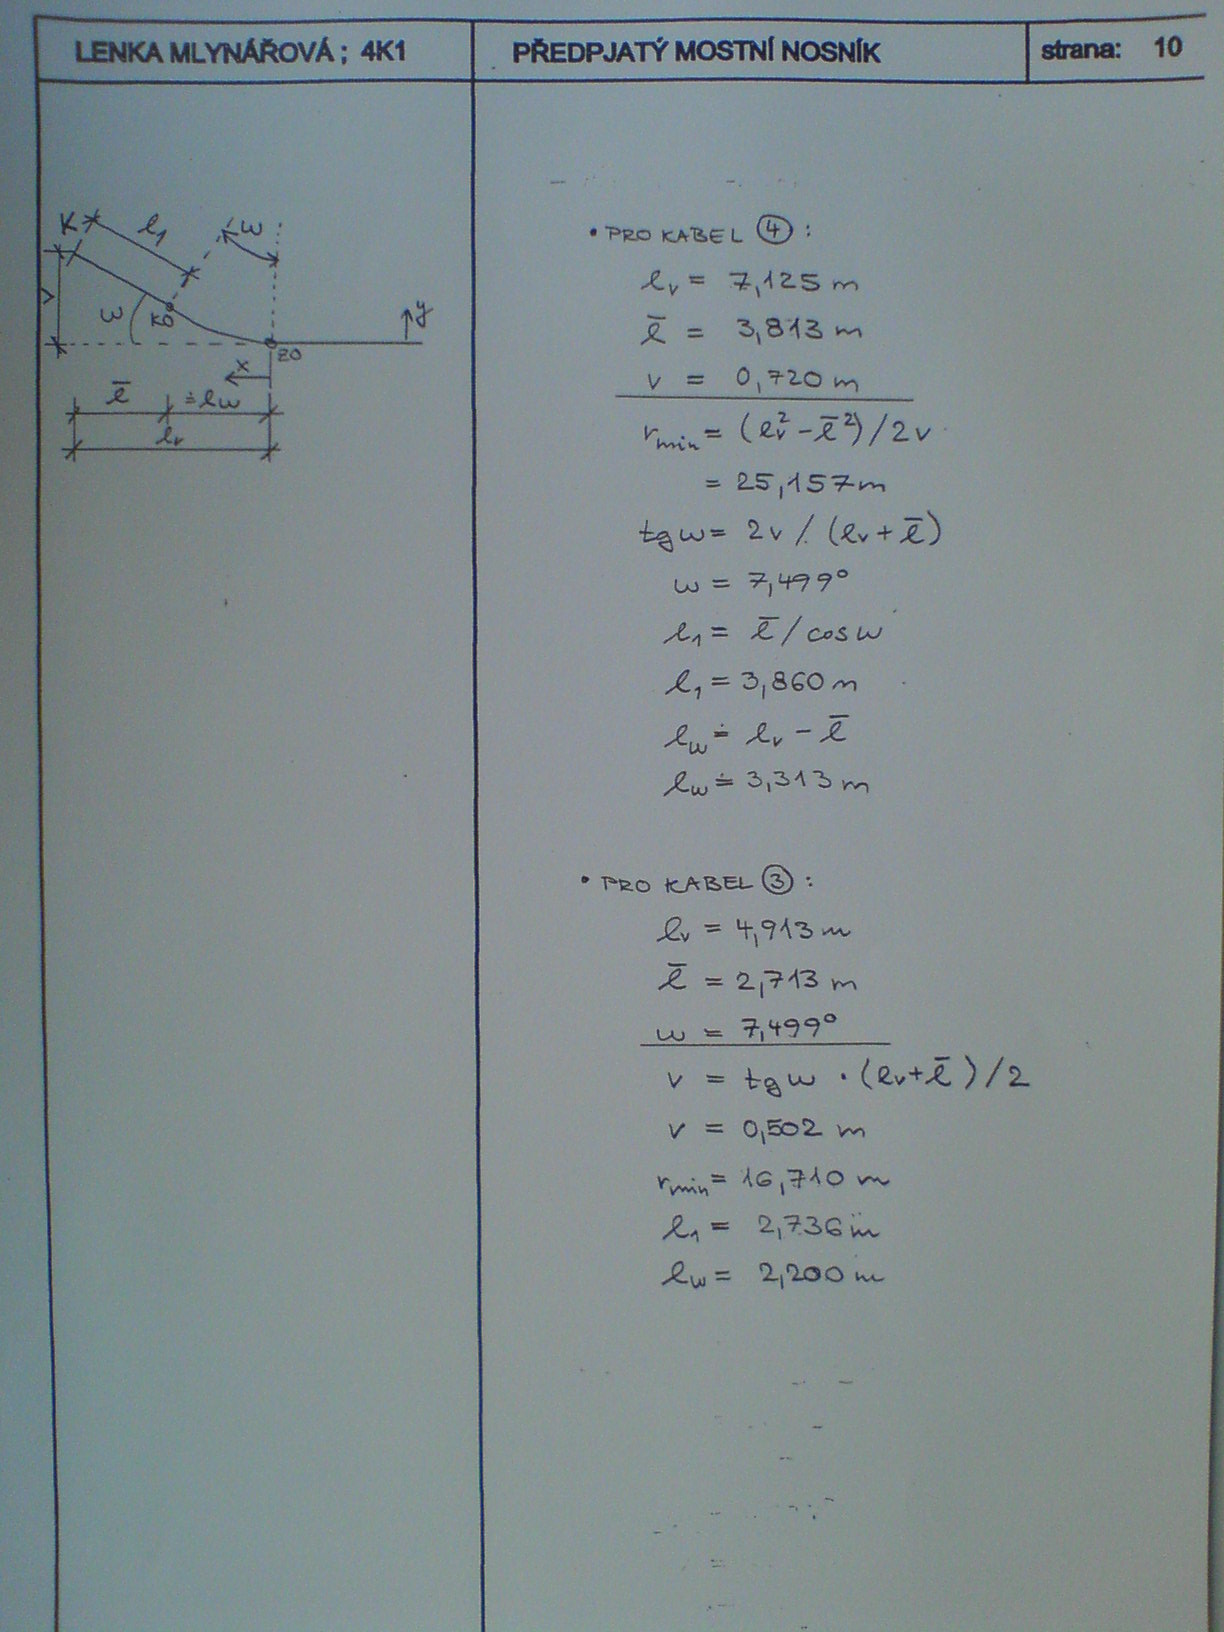 LENKA MLYNÁŘOVÁ; 4K1
PŘEDPJATÝ MOSTNÍ NOSNÍK
strana: 10
K
l₁
ω
v
ω
KO
ZO
y
x
l̄
≐lω
lᵥ
• PRO KABEL ④:
lᵥ = 7,125 m
l̄ = 3,813 m
v = 0,720 m
rmin = (lᵥ² - l̄²)/2v
= 25,157 m
tgω = 2v / (lᵥ + l̄)
ω = 7,499°
l₁ = l̄ / cosω
l₁ = 3,860 m
lω ≐ lᵥ - l̄
lω ≐ 3,313 m
• PRO KABEL ③:
lᵥ = 4,913 m
l̄ = 2,713 m
ω = 7,499°
v = tgω · (lᵥ + l̄)/2
v = 0,502 m
rmin = 16,710 m
l₁ = 2,736 m
lω = 2,200 m